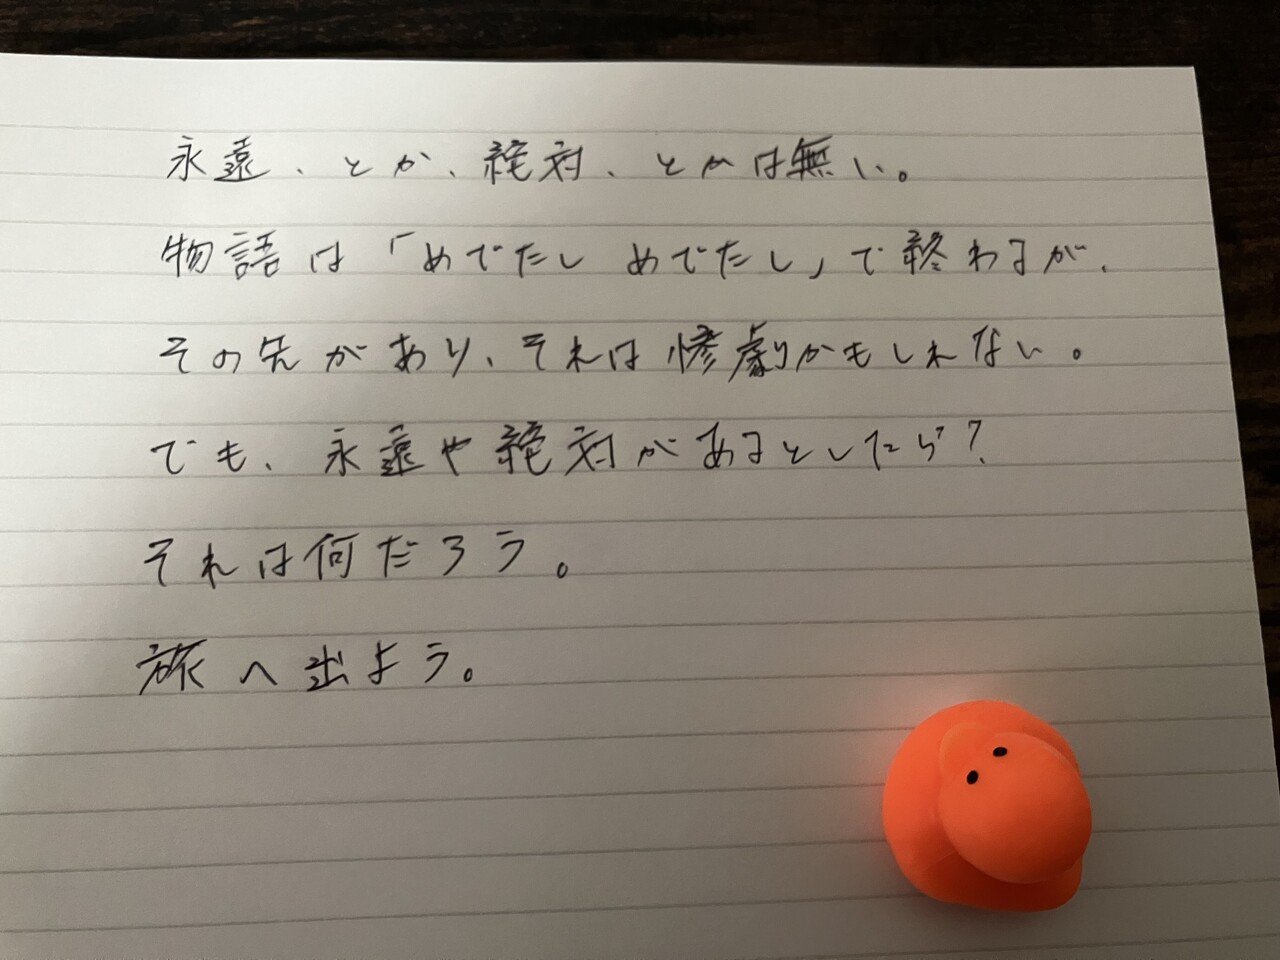 永遠、とか、絶対、とかは無い。
物語は「めでたしめでたし」で終わるが、
その先があり、それは惨劇かもしれない。
でも、永遠や絶対があるとしたら？
それは何だろう。
旅へ出よう。